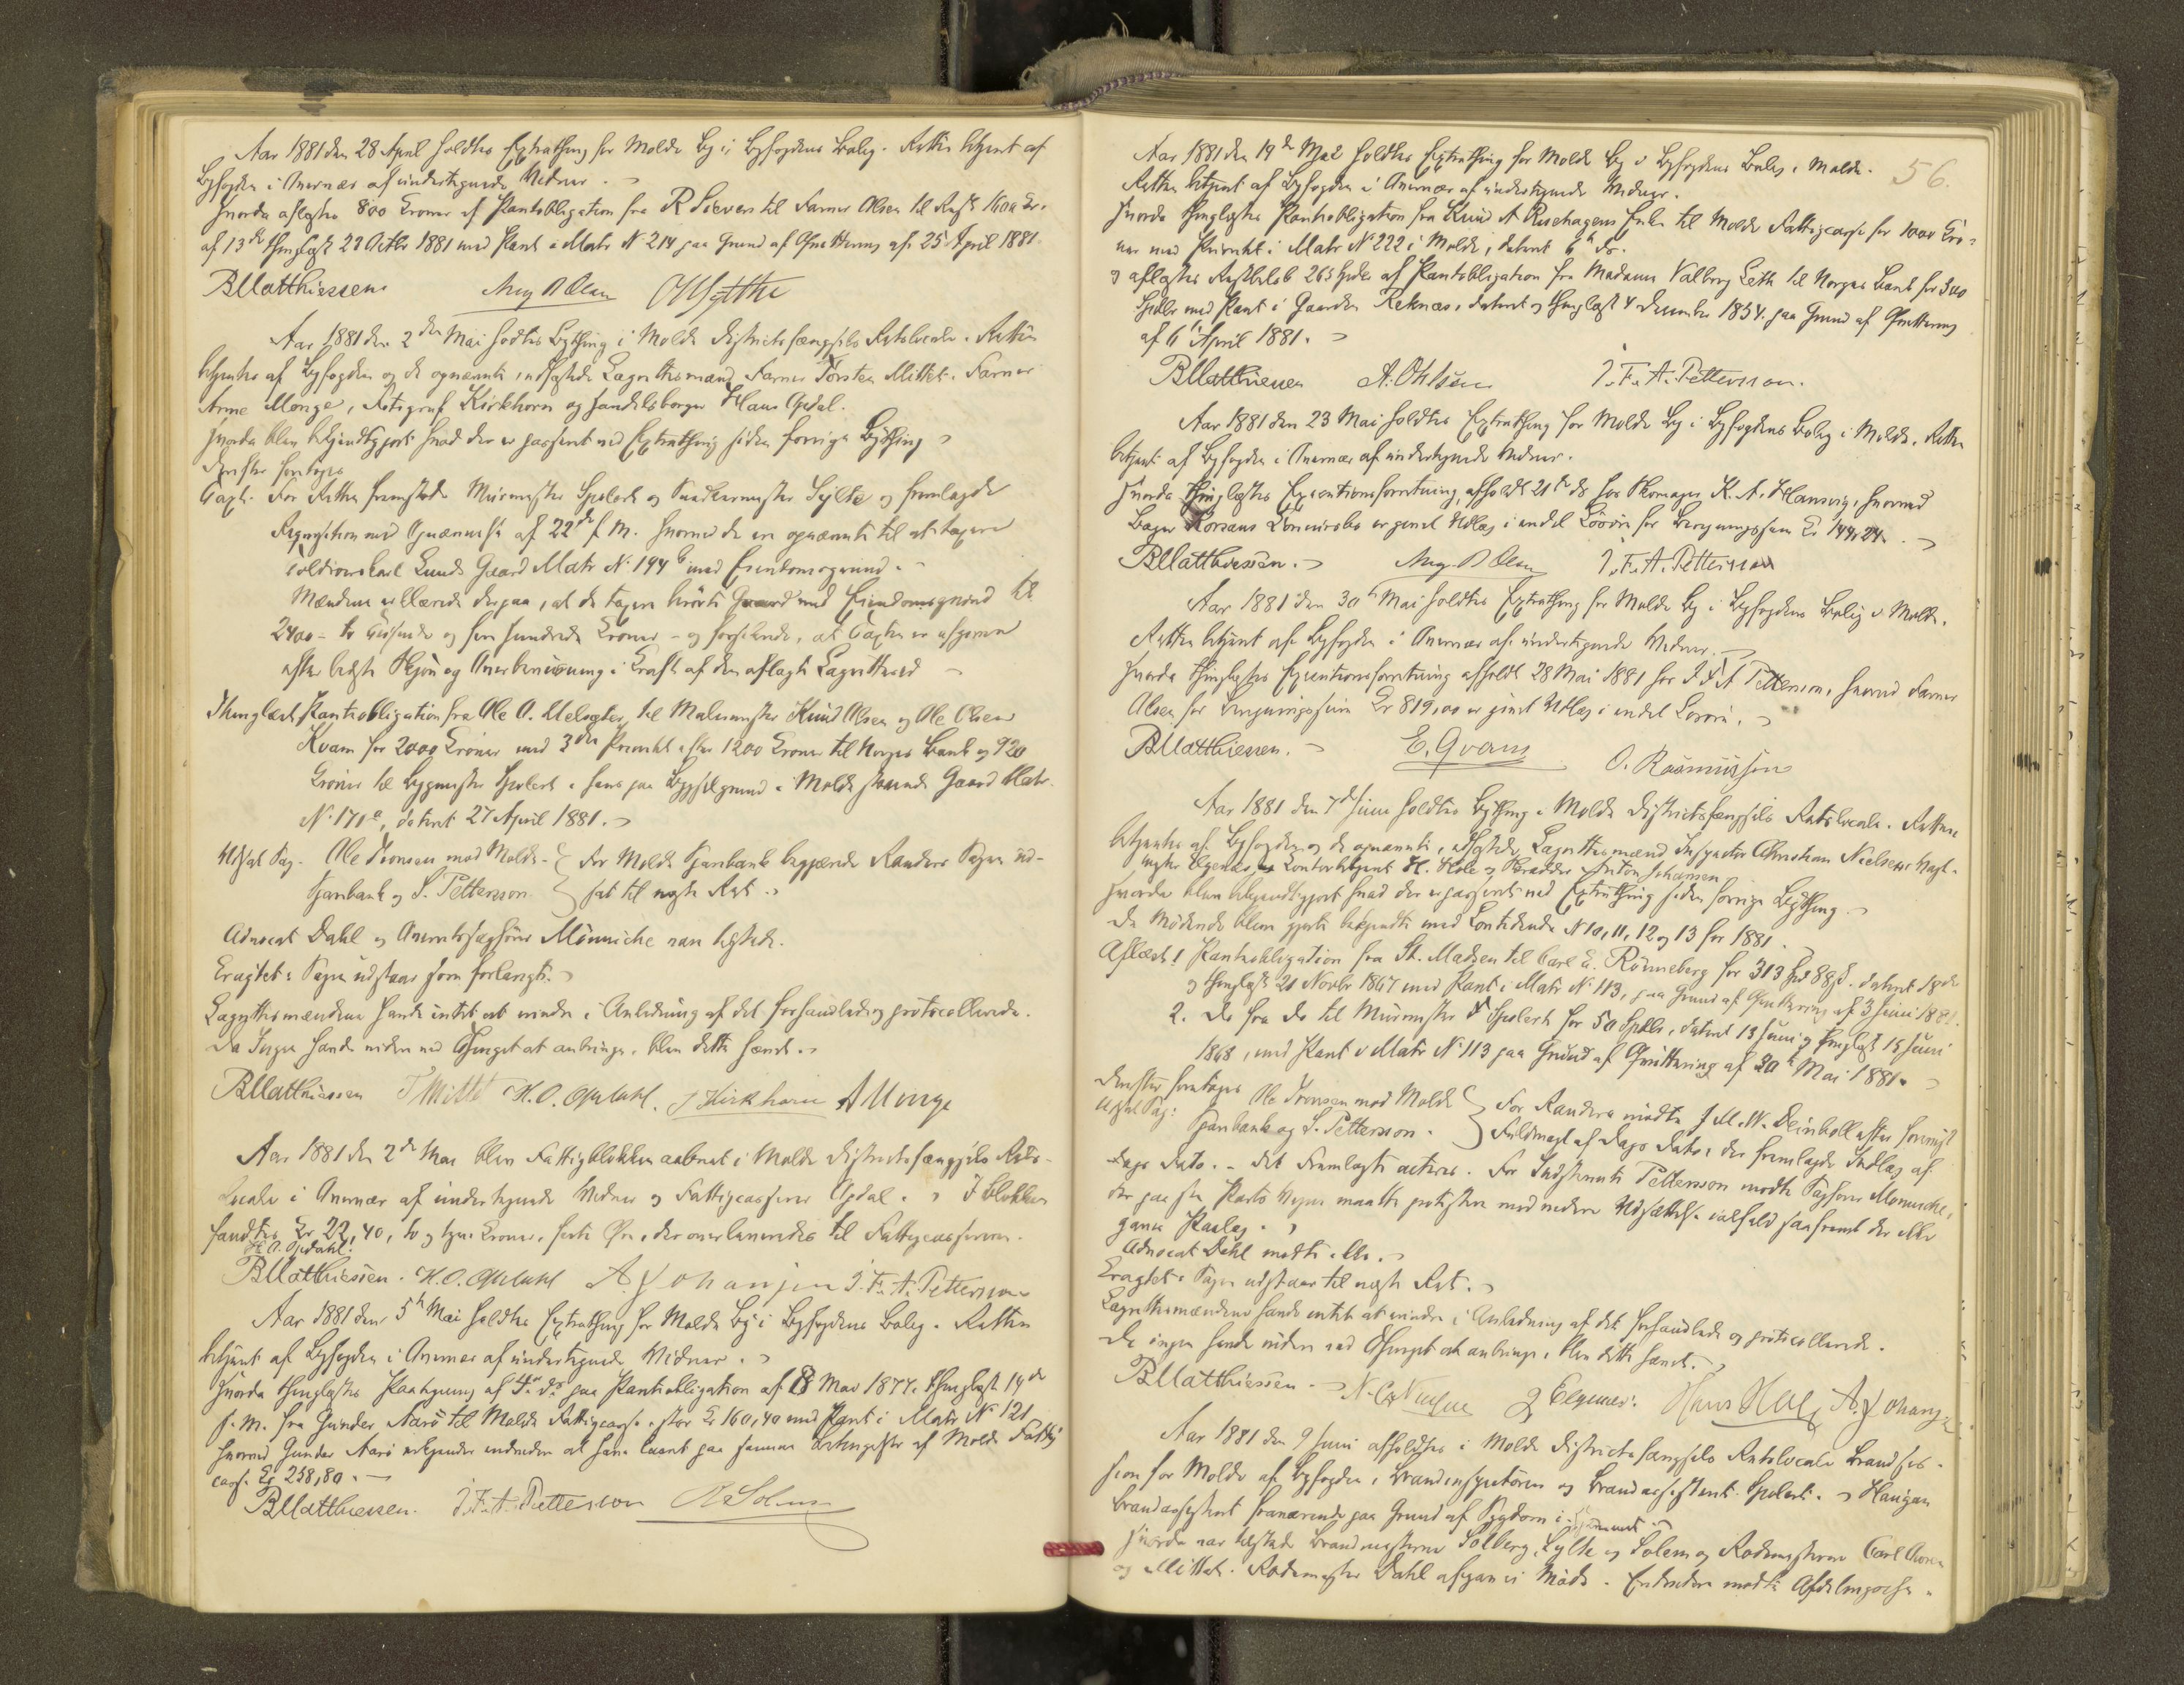 Aar 1881 den 28 April holdtes Extrathing for Molde By i Byfogdens Bolig. Retten betjent af
Byfogden i Overvær af undertegnede Vidner.
Hvorda aflæstes 800 Kroner af Pantobligation fra R Sievers til Farver Olsen til Rest 1600 Kr.
af 13de thinglæst 22 Octbr 1881 med Pant i Matr N 214 paa Grund af Qvittering af 25 April 1881.
BMatthiessen Aug B Olsen
Aar 1881 den 2den Mai holdtes Bything i Molde Districtsfængsels Retslocale. Retten
betjentes af Byfogden og de opnævnte, edfæstede Lagrettesmænd Farver Torsten Mittet, Farver
Arne Monge, Kirkhorn og Handelsborger Hans Opdal.
Hvorda blev bekjendtgjort hvad der er passeret ved Extrathing siden forrige Bything
Derefter foretoges
Taxt. For Retten fremstode Muurmester Spolert og Snedkermester Sylte og fremlagde
Reqvisition med Opnævnelse af 22de f. M. hvorved de ere opnævnte til at taxere
Lunds Gaard Matr N. 194b med Eiendomsgrund.
Mændene erklærede derpaa, at de taxere hvorte Gaard med Eiendomsgrund til
2400 - to Tusinde og fire hundrede Kroner - og forsikrede, at Taxten er afgiven
efter bedste Skjøn og Overbeviisning i Kraft af den aflagte Lagrettesed
Thinglæst Pantobligation fra Ole O. Melsæter til Malermester Knud Olsen og Ole Olsen
Kvam for 2000 Kroner med 3die Prioritet efter 1200 Kroner til Norges Bank og 920
Kroner til Bygmester Spolert i hans paa Bygselgrund i Molde staaende Gaard Matr.
N. 171a, dateret 27 April 1881.
Udsat Sag. Ole Ivensen mod Molde For Molde Sparebank begjærede Randers Sagen ud-
Sparebank og S. Petterson. sat til næste Ret.
Advocat Dahl og Overretssagfører Münniche var tilstede.
Eragtet: Sagen udstaar som forlangt.
Lagrettesmændene havde intet at erindre i Anledning af det forhandlede og protocollerede.
Da Ingen havde videre ved Thinget at anbringe, blev dette hævet.
BMatthiessen T Mittet H. O. Opdahl. J Kirkhorn A Monge
Aar 1881 den 2den Mai blev Fattigblokken aabnet i Molde Districtsfængsels Rets-
locale i Overvær af undertegnede Vidner og Fattigcasserer Opdal. I Blokken
fandtes Kr 22,40, to og tyve Kroner, forti Øre, der overleveredes til Fattigcassereren
H. O. Opdahl.
BMatthiessen. H. O. Opdahl A. Johansen J. F. A. Petterson
Aar 1881 den 5te Mai holdtes Extrathing for Molde By i Byfogdens Bolig. Retten
betjent af Byfogden i Overvær af undertegnede Vidner.
Hvorda thinglæstes Paategning af 4de ds. paa Pantobligation af 8 Mai 1877, thinglæst 14de
s. M. fra Gunder Aarø til Molde Fattigcasse, stor Kr 160,40 med Pant i Matr N 121
hvorved Gunder Aarø erkjender endvidere at have laant paa samme Betingelser af Molde Fattig
casse Kr 258,80.
BMatthiessen. J. F. A. Petterson
56.
Aar 1881 den 19de Mai holdtes Extrathing for Molde By i Byfogdens Bolig i Molde.
Retten betjent af Byfogden i Overvær af undertegnede Vidner.
Hvorda thinglæstes Pantobligation fra Knud A Rusehagens Enke til Molde Fattigcasse for 1000 Kro-
ner med Prioritet i Matr N 222 i Molde, dateret 6te ds.
og aflæstes Restbeløb 265 Spdlr af Pantobligation fra Madame Valborg Leth til Norges Bank for 300
Spdlr med Pant i Gaarden Reknæs, dateret og thinglæst 4 December 1854. paa Grund af Qvittering
af 6te April 1881.
BMatthiessen A. Ohlsen J. F. A. Petterson.
Aar 1881 den 23 Mai holdtes Extrathing for Molde By i Byfogdens Bolig i Molde. Retten
betjent af Byfogden i Overvær af undertegnede Vidner.
Hvorda thinglæstes Executionsforretning, afholdt 21de ds hos Skomager K. A. Hansvig, hvorved
Bager er givet Udlæg i endel Løsøre for Kr 144,24.
BMatthiessen. Aug. B Olsen J. F. A. Petterson
Aar 1881 den 30te Mai holdtes Extrathing for Molde By i Byfogdens Bolig i Molde.
Retten betjent af Byfogden i Overvær af undertegnede Vidner.
Hvorda thinglæstes Executionsforretning afholdt 28 Mai 1881 hos J F A Petterson, hvorved Farver
Olsen for Kr 819,00 er givet Udlæg i endel Løsøre.
BMatthiessen. E. Qvam O. Rasmussen
Aar 1881 den 7de Juni holdtes Bything i Molde Districtsfængsels Retslocale. Retten
betjentes af Byfogden og de opnævnte, edfæstede Lagrettesmænd Inspecteur Christian Nielsen, Vagt-
mester Elgenes, Contorbetjent H. Hole og Anton Johansen
Hvorda blev bekjendtgjort hvad der er passeret ved Extrathing siden forrige Bything.
De Mødende blev gjort bekjendte med Lovtidende N 10, 11, 12 og 13 for 1881.
Aflæst: 1 Pantobligation fra St. Madsen til Carl E. Rønneberg for 313 Spd 88 ß. dateret 18de
og thinglæst 21 Novbr 1867 med Pant i Matr N. 113, paa Grund af Qvittering af 3 Juni 1881.
2. Do fra do til Murmester Spolert for 50 Spdlr, dateret 13 Juni og thinglæst 15 Juni
1868, med Pant i Matr N. 113 paa Grund af Qvittering af 30te Mai 1881.
Derefter foretoges
Udsat Sag: Ole Ivensen mod Molde Sparebank og S. Petterson. For Randers mødte J. M. W. Deinboll efter
Fuldmagt af Dags Dato, der fremlagde Indlæg af
Dags Dato. - Det Fremlagte acteres. For Indstevnte Petterson mødte Sagfører Monniche,
der paa sin Parts Vegne maatte protestere mod videre Udsættelse ialfald saafremt der ikke
gives Paalæg.
Advocat Dahl mødte ikke.
Eragtet: Sagen udstaar til næste Ret.
Lagrettesmændene havde intet at erindre i Anledning af det forhandlede og protocollerede.
Da ingen havde videre ved Thinget at anbringe, blev dette hævet.
BMatthiessen Elgenes. Hans Hole A. Johansen
Aar 1881 den 9 Juni afholdtes i Molde Districtsfængsels Retslocale Brandses-
sion for Molde af Byfogden, Brandinspecteuren og Brandassistent Spolert. Haugan
Brandassistent fraværende paa Grund af Sygdom
Hvorda var tilstede Brandmesterne Solberg, Sylte og Solem og Rodemesterne Carl Owren
og Mittet. Rodemester Dahl afgav ei Møde. Endvidere mødte